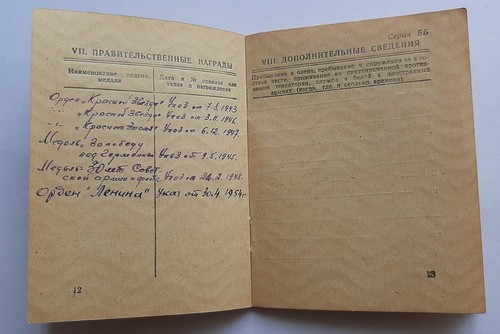 VII. ПРАВИТЕЛЬСТВЕННЫЕ НАГРАДЫ
Наименование ордена, медали
Дата и № приказа или указа о награждении
Орден „Красной Звезды" Указ от 7.I.1943
" „Красной Звезды" Указ от 3.II.1944
" „Красного Знамени" Указ от 6.12.1947.
Медаль За победу
над Германией Указ от 9.5.1945.
Медаль 30 лет Совет
ской армии и флота Указ от 22.2.1948.
Орден "Ленина" Указ от 30.4.1954г.
12
Серия ББ
VIII. ДОПОЛНИТЕЛЬНЫЕ СВЕДЕНИЯ
Пребывание в плену, пребывание в окружении не в со-
ставе части, проживание на оккупированной против-
ником территории, служба в белой и иностранных
армиях (когда, где и сколько времени)
13